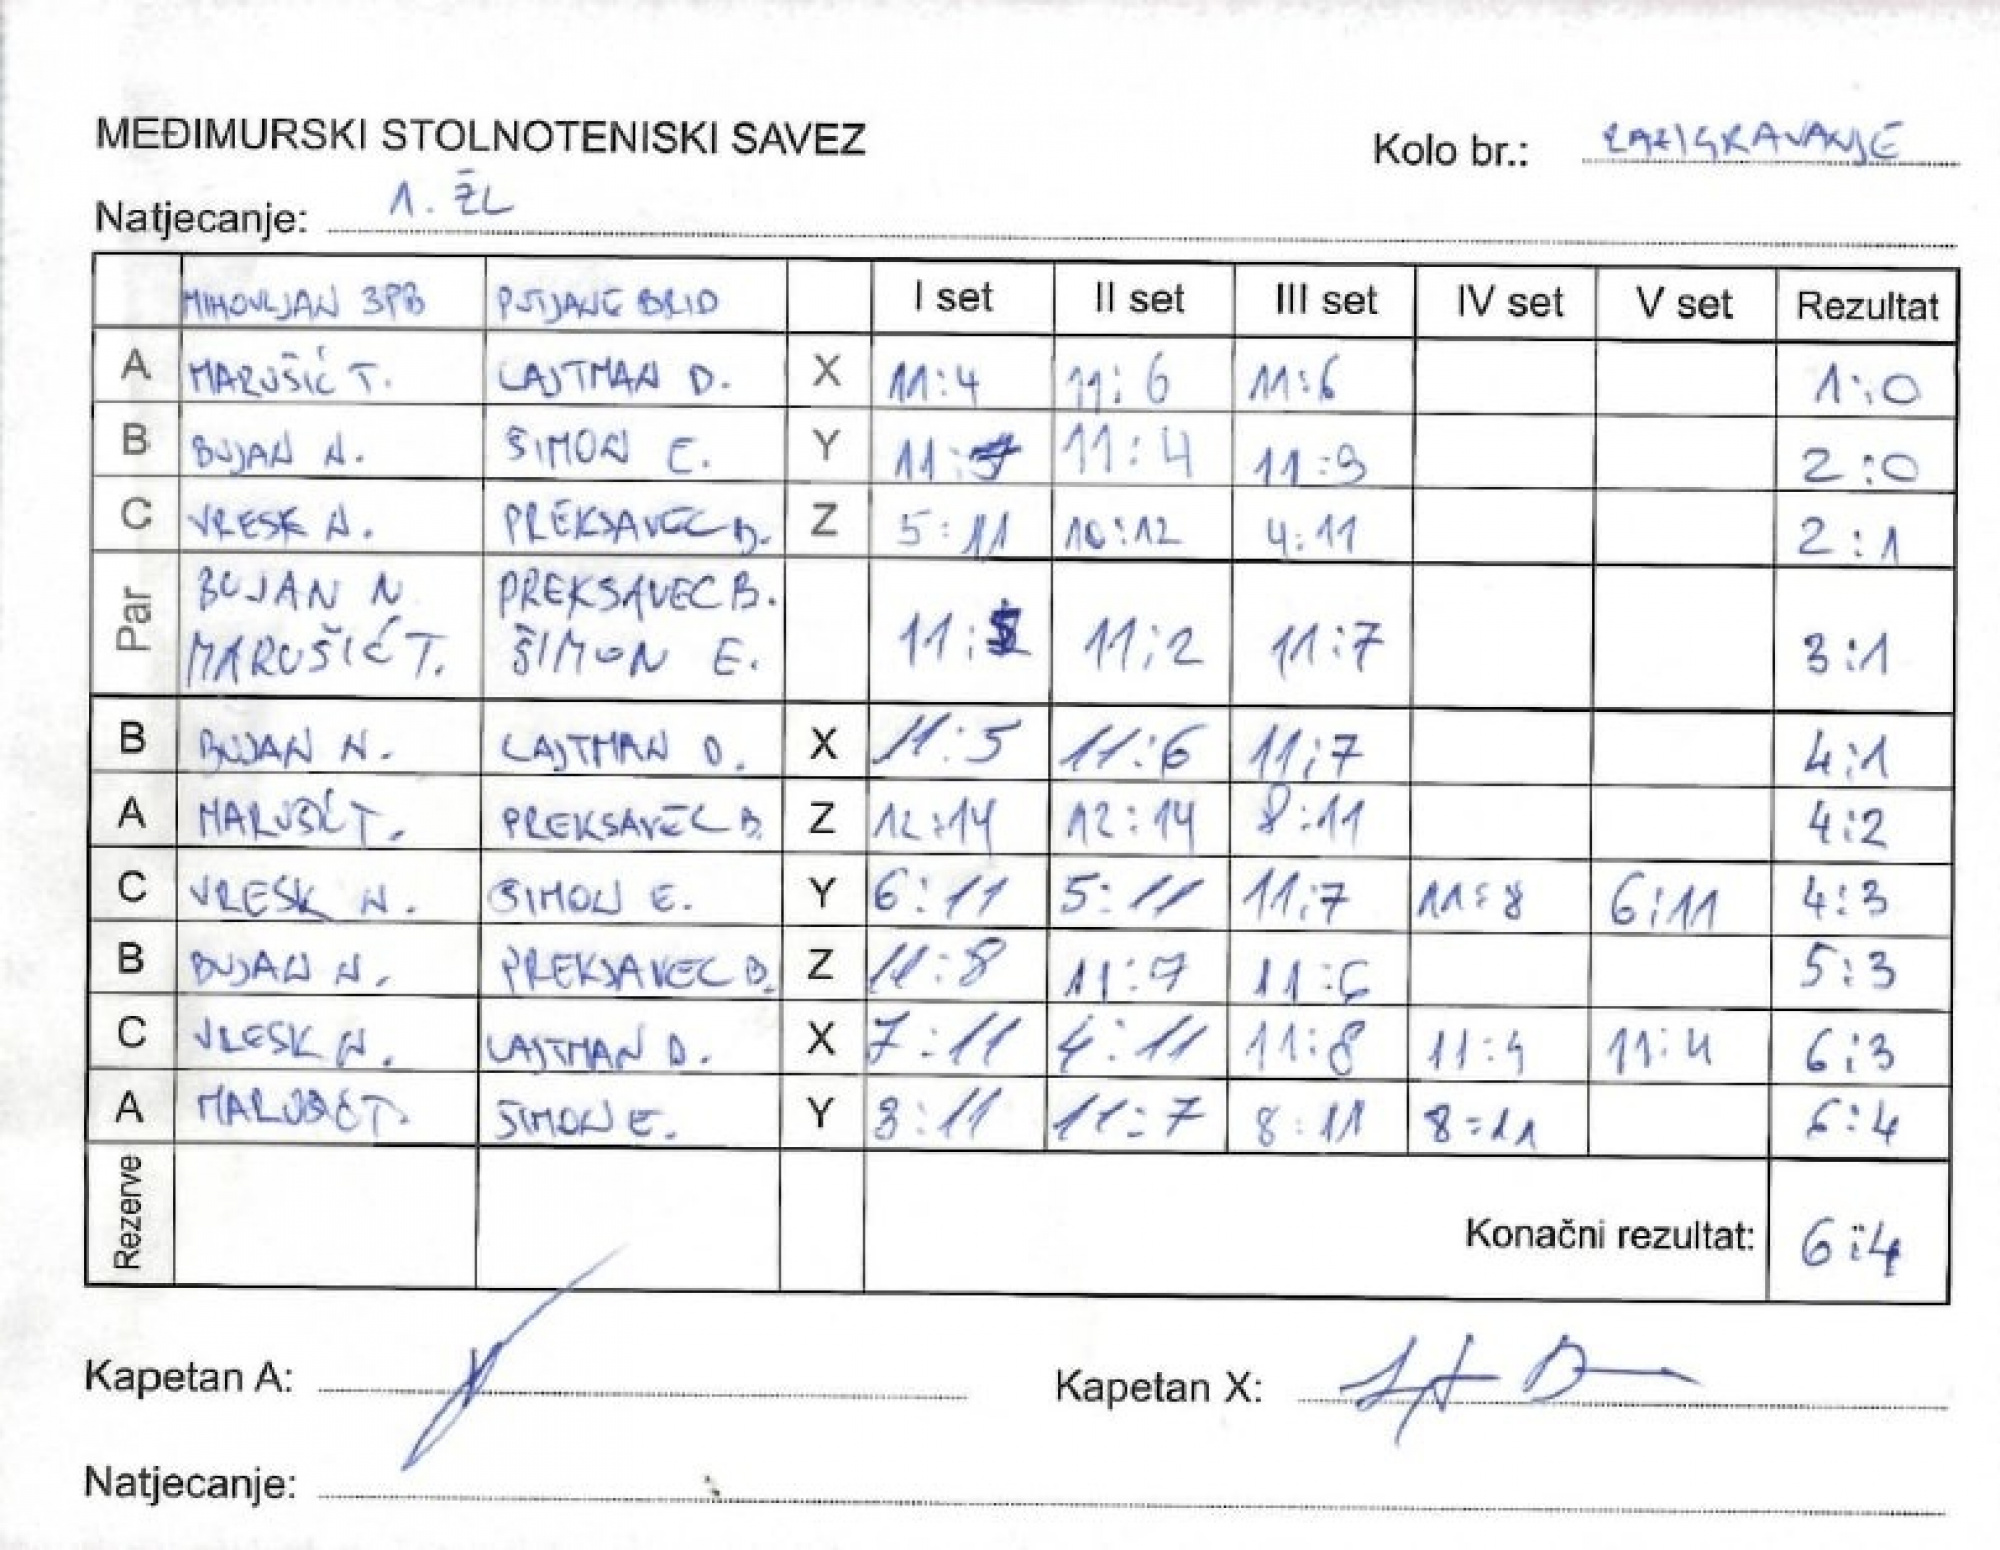 MEĐIMURSKI STOLNOTENISKI SAVEZ Kolo br.: RAZIGRAVANJE
Natjecanje: 1. ŽL
MIHOVLJAN 3PB BRID I set II set III set IV set V set Rezultat
A MARUŠIĆ T. LAJTMAN D. X 11:4 11:6 11:6 1:0
B BUJAN N. ŠIMON E. Y 11: 11:4 11:9 2:0
C VRESK N. PREKSAVEC B. Z 5:11 10:12 4:11 2:1
Par BUJAN N. PREKSAVEC B.
MARUŠIĆ T. ŠIMON E. 11:5 11:2 11:7 3:1
B BUJAN N. LAJTMAN D. X 11:5 11:6 11:7 4:1
A MARUŠIĆ T. PREKSAVEC B. Z 12:14 12:14 8:11 4:2
C VRESK N. ŠIMON E. Y 6:11 5:11 11:7 11:8 6:11 4:3
B BUJAN N. PREKSAVEC B. Z 11:8 11:7 11:6 5:3
C VRESK N. LAJTMAN D. X 7:11 4:11 11:8 11:4 11:4 6:3
A MARUŠIĆ T. ŠIMON E. Y 3:11 11:7 8:11 8:11 6:4
Rezerve Konačni rezultat: 6:4
Kapetan A: Kapetan X:
Natjecanje: